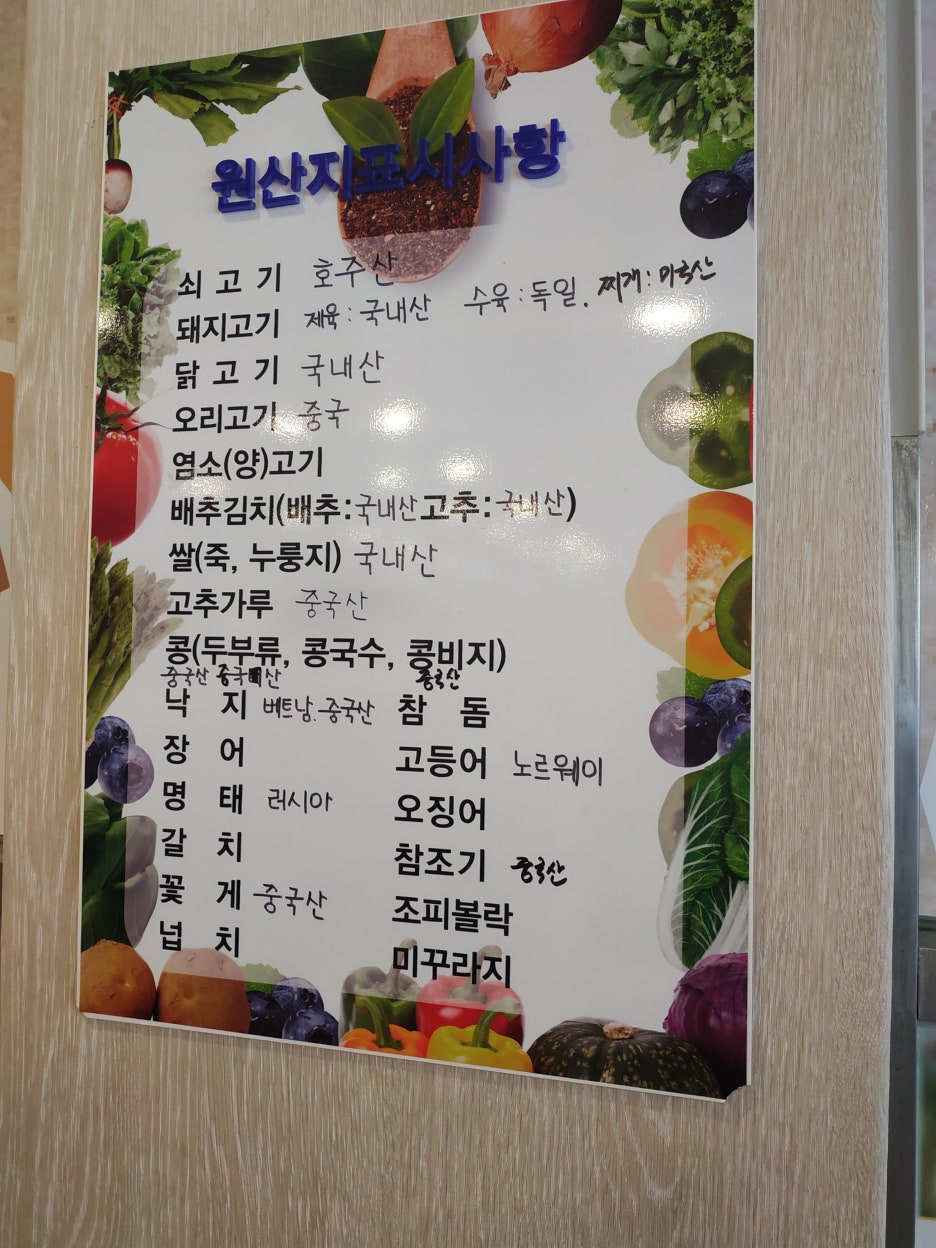 원산지표시사항
쇠고기 호주산
돼지고기 제육:국내산 수육:독일. 찌개:미국산
닭고기 국내산
오리고기 중국
염소(양)고기
배추김치(배추:국내산고추:국내산)
쌀(죽, 누룽지) 국내산
고추가루 중국산
콩(두부류, 콩국수, 콩비지)
중국산 중국산 중국산
낙지 베트남.중국산 참돔
장어 고등어 노르웨이
명태 러시아 오징어
갈치 참조기 중국산
꽃게 중국산 조피볼락
넙치 미꾸라지